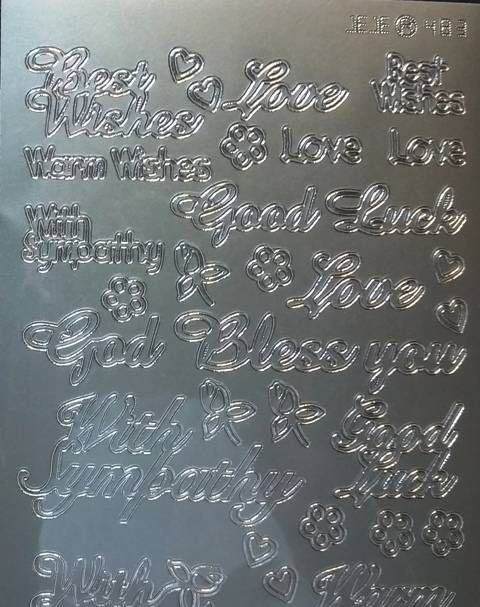 JEJE ® 483
Best Wishes
Love
Best Wishes
Love
Love
Warm Wishes
Good Luck
With Sympathy
Love
God Bless you
With Sympathy
Good Luck
With
Warm